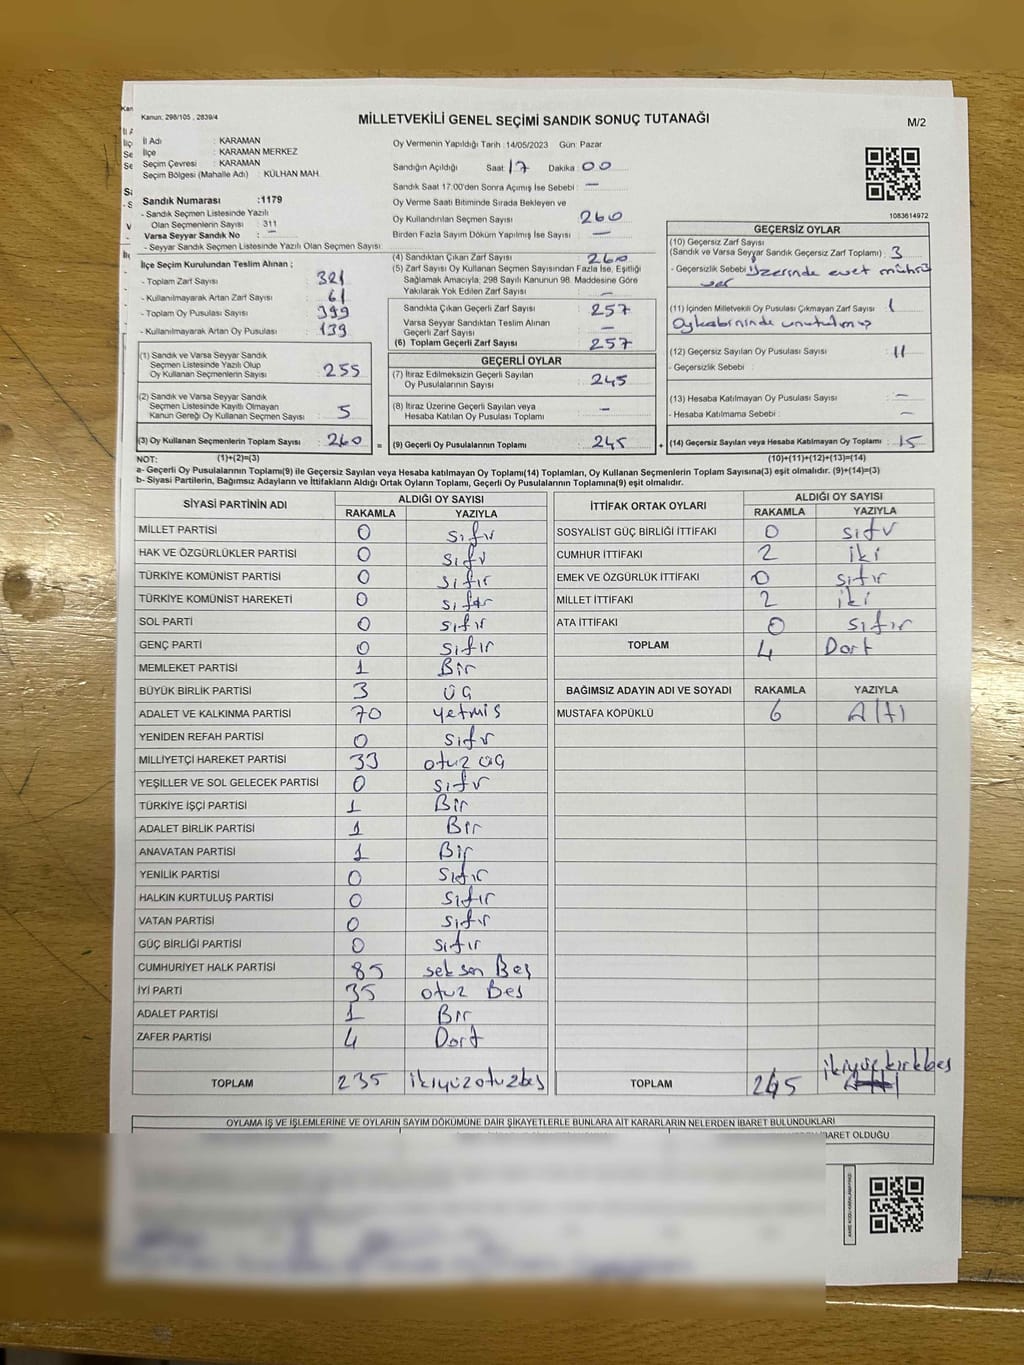 Kanun: 298/105 , 2839/4
MİLLETVEKİLİ GENEL SEÇİMİ SANDIK SONUÇ TUTANAĞI
M/2
İl Adı : KARAMAN
İlçe : KARAMAN MERKEZ
Seçim Çevresi : KARAMAN
Seçim Bölgesi (Mahalle Adı) : KÜLHAN MAH.
Sandık Numarası :1179
- Sandık Seçmen Listesinde Yazılı
Olan Seçmenlerin Sayısı : 311
Varsa Seyyar Sandık No : —
- Seyyar Sandık Seçmen Listesinde Yazılı Olan Seçmen Sayısı:
Oy Vermenin Yapıldığı Tarih : 14/05/2023 Gün: Pazar
Sandığın Açıldığı Saat: 17 Dakika: 00
Sandık Saat 17:00'den Sonra Açımış İse Sebebi : —
Oy Verme Saati Bitiminde Sırada Bekleyen ve
Oy Kullandırılan Seçmen Sayısı : 260
Birden Fazla Sayım Döküm Yapılmış İse Sayısı : —
1083614972
İlçe Seçim Kurulundan Teslim Alınan ;
- Toplam Zarf Sayısı : 321
- Kullanılmayarak Artan Zarf Sayısı : 61
- Toplam Oy Pusulası Sayısı : 399
- Kullanılmayarak Artan Oy Pusulası : 139
(1) Sandık ve Varsa Seyyar Sandık
Seçmen Listesinde Yazılı Olup
Oy Kullanan Seçmenlerin Sayısı : 255
(2) Sandık ve Varsa Seyyar Sandık
Seçmen Listesinde Kayıtlı Olmayan
Kanun Gereği Oy Kullanan Seçmen Sayısı : 5
(3) Oy Kullanan Seçmenlerin Toplam Sayısı : 260 =
(4) Sandıktan Çıkan Zarf Sayısı : 260
(5) Zarf Sayısı Oy Kullanan Seçmen Sayısından Fazla İse, Eşitliği
Sağlamak Amacıyla, 298 Sayılı Kanunun 98. Maddesine Göre
Yakılarak Yok Edilen Zarf Sayısı : —
Sandıkta Çıkan Geçerli Zarf Sayısı : 257
Varsa Seyyar Sandıktan Teslim Alınan
Geçerli Zarf Sayısı : —
(6) Toplam Geçerli Zarf Sayısı : 257
GEÇERLİ OYLAR
(7) İtiraz Edilmeksizin Geçerli Sayılan
Oy Pusulalarının Sayısı : 245
(8) İtiraz Üzerine Geçerli Sayılan veya
Hesaba Katılan Oy Pusulası Toplamı : —
(9) Geçerli Oy Pusulalarının Toplamı : 245 +
GEÇERSİZ OYLAR
(10) Geçersiz Zarf Sayısı
(Sandık ve Varsa Seyyar Sandık Geçersiz Zarf Toplamı) : 3
- Geçersizlik Sebebi : Üzerinde evet mührü
var
(11) İçinden Milletvekili Oy Pusulası Çıkmayan Zarf Sayısı : 1
Oykabininde unutulmuş
(12) Geçersiz Sayılan Oy Pusulası Sayısı : 11
- Geçersizlik Sebebi :
(13) Hesaba Katılmayan Oy Pusulası Sayısı : —
- Hesaba Katılmama Sebebi : —
(14) Geçersiz Sayılan veya Hesaba Katılmayan Oy Toplamı : 15
NOT: (1)+(2)=(3) (10)+(11)+(12)+(13)=(14)
a- Geçerli Oy Pusulalarının Toplamı(9) ile Geçersiz Sayılan veya Hesaba katılmayan Oy Toplamı(14) Toplamları, Oy Kullanan Seçmenlerin Toplam Sayısına(3) eşit olmalıdır. (9)+(14)=(3)
b- Siyasi Partilerin, Bağımsız Adayların ve İttifakların Aldığı Ortak Oyların Toplamı, Geçerli Oy Pusulalarının Toplamına(9) eşit olmalıdır.
SİYASİ PARTİNİN ADI ALDIĞI OY SAYISI
RAKAMLA YAZIYLA
MİLLET PARTİSİ 0 sıfır
HAK VE ÖZGÜRLÜKLER PARTİSİ 0 sıfır
TÜRKİYE KOMÜNİST PARTİSİ 0 sıfır
TÜRKİYE KOMÜNİST HAREKETİ 0 sıfır
SOL PARTİ 0 sıfır
GENÇ PARTİ 0 sıfır
MEMLEKET PARTİSİ 1 Bir
BÜYÜK BİRLİK PARTİSİ 3 üç
ADALET VE KALKINMA PARTİSİ 70 yetmiş
YENİDEN REFAH PARTİSİ 0 sıfır
MİLLİYETÇİ HAREKET PARTİSİ 33 otuz üç
YEŞİLLER VE SOL GELECEK PARTİSİ 0 sıfır
TÜRKİYE İŞÇİ PARTİSİ 1 Bir
ADALET BİRLİK PARTİSİ 1 Bir
ANAVATAN PARTİSİ 1 Bir
YENİLİK PARTİSİ 0 sıfır
HALKIN KURTULUŞ PARTİSİ 0 sıfır
VATAN PARTİSİ 0 sıfır
GÜÇ BİRLİĞİ PARTİSİ 0 sıfır
CUMHURİYET HALK PARTİSİ 85 seksen Beş
İYİ PARTİ 35 otuz Beş
ADALET PARTİSİ 1 Bir
ZAFER PARTİSİ 4 Dört
TOPLAM 235 ikiyüzotuzbeş
İTTİFAK ORTAK OYLARI ALDIĞI OY SAYISI
RAKAMLA YAZIYLA
SOSYALİST GÜÇ BİRLİĞİ İTTİFAKI 0 sıfır
CUMHUR İTTİFAKI 2 iki
EMEK VE ÖZGÜRLÜK İTTİFAKI 0 sıfır
MİLLET İTTİFAKI 2 iki
ATA İTTİFAKI 0 sıfır
TOPLAM 4 Dört
BAĞIMSIZ ADAYIN ADI VE SOYADI RAKAMLA YAZIYLA
MUSTAFA KÖPÜKLÜ 6 Altı
TOPLAM 245 ikiyüzkırkbeş
OYLAMA İŞ VE İŞLEMLERİNE VE OYLARIN SAYIM DÖKÜMÜNE DAİR ŞİKAYETLERLE BUNLARA AİT KARARLARIN NELERDEN İBARET BULUNDUKLARI
İBARET OLDUĞU